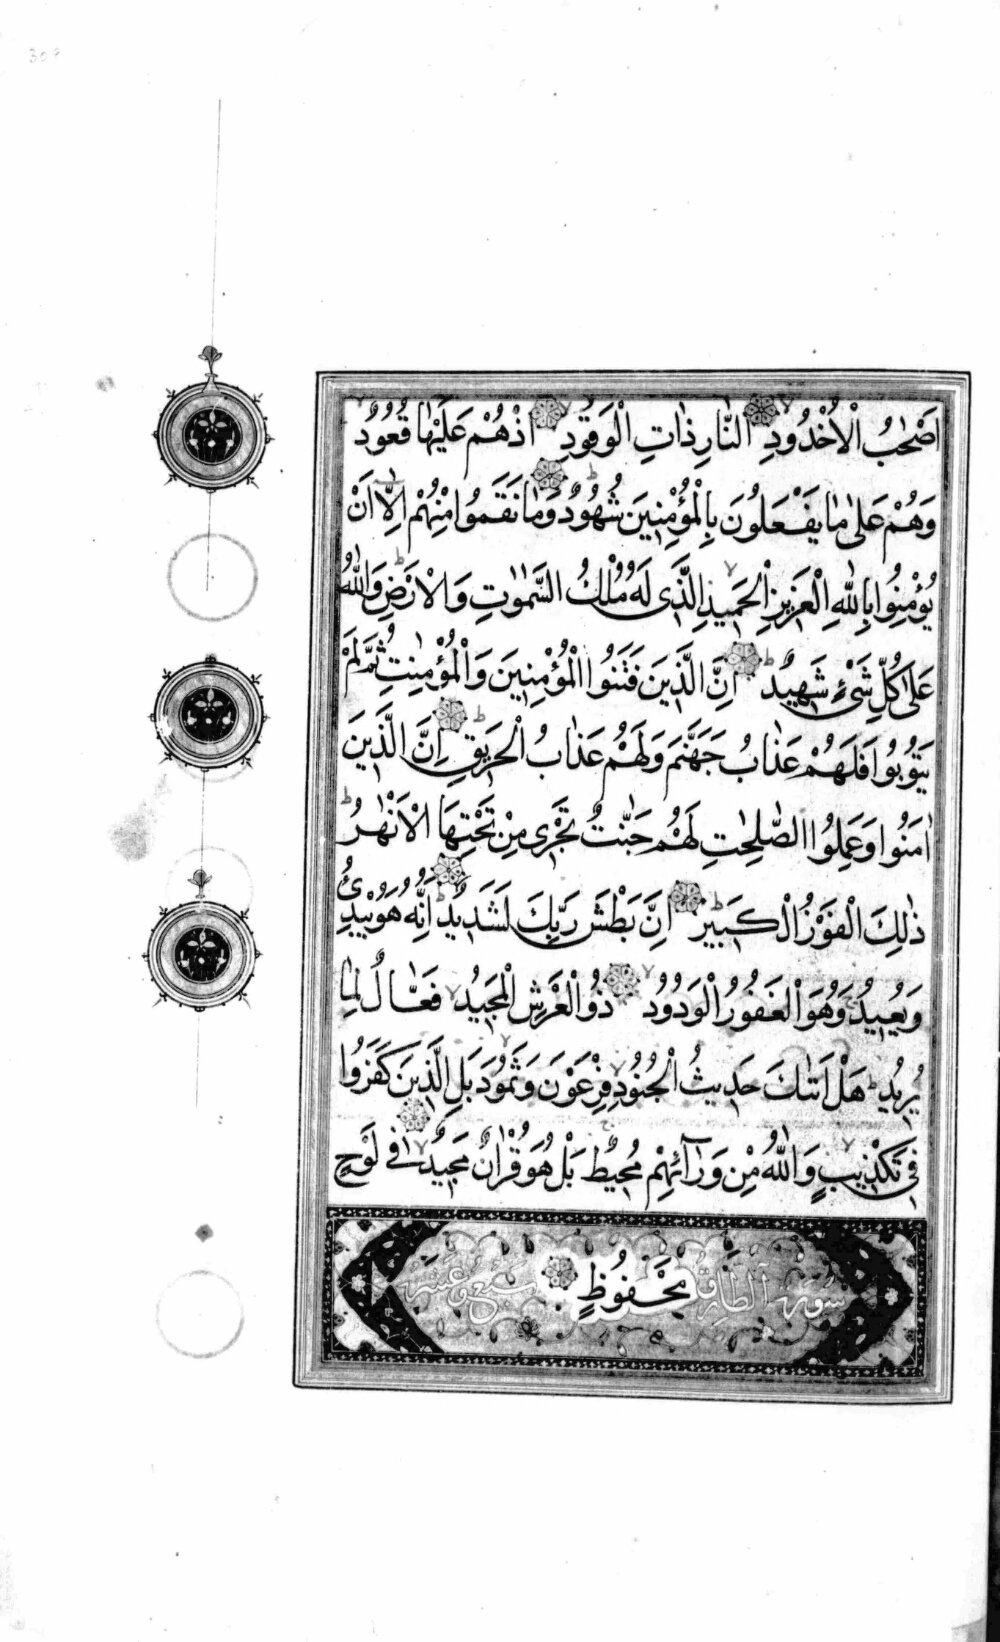 اَصْحٰبُ الْاُخْدُودِ النَّارِ ذٰاتِ الْوَقوُدِ اِذْ هُمْ عَلَيْهٰا قُعُودٌ
وَهُمْ عَلىٰ مٰا يَفْعَلوُنَ بِالْمُؤْمِنِينَ شُهُودٌ وَمٰا نَقَمُوا مِنْهُمْ اِلّٰا اَنْ
يُؤْمِنُوا بِاللّٰهِ الْعَزِيزِ الْحَمِيدِ الَّذِى لَهُ مُلْكُ السَّمٰوٰتِ وَالْاَرْضِ وَاللّٰهُ
عَلىٰ كُلِّ شَىْءٍ شَهِيدٌ اِنَّ الَّذِينَ فَتَنُوا الْمُؤْمِنِينَ وَالْمُؤْمِنٰتِ ثُمَّ لَمْ
يَتوُبوُا فَلَهُمْ عَذٰابُ جَهَنَّمَ وَلَهُمْ عَذٰابُ الْحَرِيقِ اِنَّ الَّذِينَ
اٰمَنُوا وَعَمِلُوا الصّٰلِحٰتِ لَهُمْ جَنّٰتٌ تَجْرِى مِنْ تَحْتِهَا الْاَنْهٰرُ
ذٰلِكَ الْفَوْزُ الْكَبِيرُ اِنَّ بَطْشَ رَبِّكَ لَشَدِيدٌ اِنَّهُ هُوَ يُبْدِئُ
وَيُعِيدُ وَهُوَ الْغَفُورُ الْوَدُودُ ذُو الْعَرْشِ الْمَجِيدُ فَعّٰالٌ لِمٰا
يُرِيدُ هَلْ اَتٰىكَ حَدِيثُ الْجُنُودِ فِرْعَوْنَ وَثَمُودَ بَلِ الَّذِينَ كَفَرُوا
فِى تَكْذِيبٍ وَاللّٰهُ مِنْ وَرٰآئِهِمْ مُحِيطٌ بَلْ هُوَ قُرْاٰنٌ مَجِيدٌ فِى لَوْحٍ
سورة الطارق مَحْفُوظٍ سبع عشر